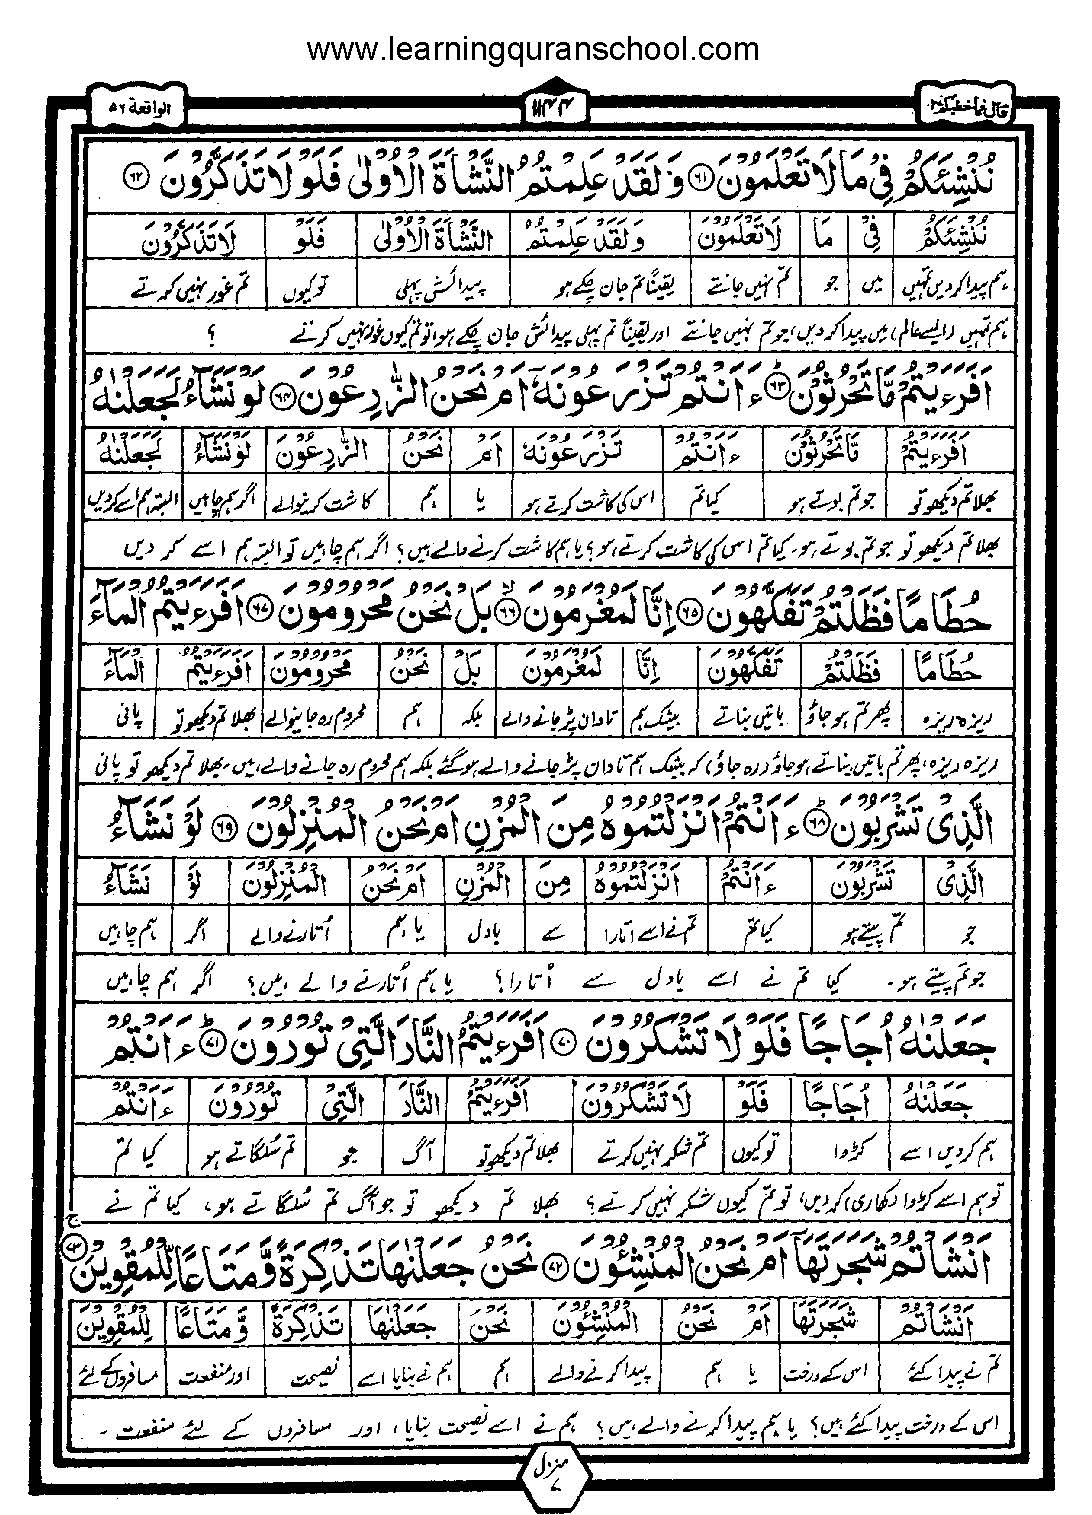 www.learningquranschool.com
قال فما خطبكم ۲۷ ۱۱۴۴ الواقعة ۵۶
نُنْشِئَكُمْ فِيْ مَا لَا تَعْلَمُوْنَ ۶۱ وَلَقَدْ عَلِمْتُمُ النَّشْاَةَ الْاُوْلٰى فَلَوْ لَا تَذَكَّرُوْنَ ۶۲
نُنْشِئَكُمْ فِيْ مَا لَا تَعْلَمُوْنَ وَلَقَدْ عَلِمْتُمُ النَّشْاَةَ الْاُوْلٰى فَلَوْ لَا تَذَكَّرُوْنَ
ہم پیدا کردیں تمہیں میں جو تم نہیں جانتے یقیناً تم جان چکے ہو پیدائش پہلی تو کیوں تم غور نہیں کرتے
ہم تمہیں (ایسے عالم) میں پیدا کردیں، جو تم نہیں جانتے اور یقیناً تم پہلی پیدائش جان چکے ہو، تو تم کیوں غور نہیں کرتے ؟
اَفَرَءَيْتُمْ مَّا تَحْرُثُوْنَ ۶۳ ءَاَنْتُمْ تَزْرَعُوْنَهٗٓ اَمْ نَحْنُ الزّٰرِعُوْنَ ۶۴ لَوْ نَشَآءُ لَجَعَلْنٰهُ
اَفَرَءَيْتُمْ مَّا تَحْرُثُوْنَ ءَاَنْتُمْ تَزْرَعُوْنَهٗ اَمْ نَحْنُ الزّٰرِعُوْنَ لَوْ نَشَآءُ لَجَعَلْنٰهُ
بھلا تم دیکھو تو جو تم بوتے ہو کیا تم اس کی کاشت کرتے ہو یا ہم کاشت کرنیوالے اگر ہم چاہیں البتہ ہم اسے کردیں
بھلا تم دیکھو تو جو تم بوتے ہو۔ کیا تم اس کی کاشت کرتے ہو؟ یا ہم کاشت کرنے والے ہیں؟ اگر ہم چاہیں تو البتہ ہم اسے کر دیں
حُطَامًا فَظَلْتُمْ تَفَكَّهُوْنَ ۶۵ اِنَّا لَمُغْرَمُوْنَ ۶۶ بَلْ نَحْنُ مَحْرُوْمُوْنَ ۶۷ اَفَرَءَيْتُمُ الْمَآءَ
حُطَامًا فَظَلْتُمْ تَفَكَّهُوْنَ اِنَّا لَمُغْرَمُوْنَ بَلْ نَحْنُ مَحْرُوْمُوْنَ اَفَرَءَيْتُمُ الْمَآءَ
ریزہ ریزہ پھر تم ہو جاؤ باتیں بناتے بیشک ہم تاوان پڑ جانے والے بلکہ ہم محروم رہ جانیوالے بھلا تم دیکھو تو پانی
ریزہ ریزہ، پھر تم باتیں بناتے ہو جاؤ (رہ جاؤ) کہ بیشک ہم تاوان پڑ جانے والے ہو گئے بلکہ ہم محروم رہ جانے والے ہیں۔ بھلا تم دیکھو تو پانی
الَّذِيْ تَشْرَبُوْنَ ۶۸ ءَاَنْتُمْ اَنْزَلْتُمُوْهُ مِنَ الْمُزْنِ اَمْ نَحْنُ الْمُنْزِلُوْنَ ۶۹ لَوْ نَشَآءُ
الَّذِيْ تَشْرَبُوْنَ ءَاَنْتُمْ اَنْزَلْتُمُوْهُ مِنَ الْمُزْنِ اَمْ نَحْنُ الْمُنْزِلُوْنَ لَوْ نَشَآءُ
جو تم پیتے ہو کیا تم تم نے اسے اتارا سے بادل یا ہم اُتارنے والے اگر ہم چاہیں
جو تم پیتے ہو۔ کیا تم نے اسے بادل سے اُتارا؟ یا ہم اُتارنے والے ہیں؟ اگر ہم چاہیں
جَعَلْنٰهُ اُجَاجًا فَلَوْ لَا تَشْكُرُوْنَ ۷۰ اَفَرَءَيْتُمُ النَّارَ الَّتِيْ تُوْرُوْنَ ۷۱ ءَاَنْتُمْ
جَعَلْنٰهُ اُجَاجًا فَلَوْ لَا تَشْكُرُوْنَ اَفَرَءَيْتُمُ النَّارَ الَّتِيْ تُوْرُوْنَ ءَاَنْتُمْ
ہم کردیں اسے کڑوا تو کیوں تم شکر نہیں کرتے بھلا تم دیکھو تو آگ جو تم سُلگاتے ہو کیا تم
تو ہم اسے کڑوا (کھاری) کردیں، تو تم کیوں شکر نہیں کرتے؟ بھلا تم دیکھو تو جو آگ تم سُلگاتے ہو، کیا تم نے
اَنْشَاْتُمْ شَجَرَتَهَآ اَمْ نَحْنُ الْمُنْشِئُوْنَ ۷۲ نَحْنُ جَعَلْنٰهَا تَذْكِرَةً وَّمَتَاعًا لِّلْمُقْوِيْنَ ۷۳
اَنْشَاْتُمْ شَجَرَتَهَآ اَمْ نَحْنُ الْمُنْشِئُوْنَ نَحْنُ جَعَلْنٰهَا تَذْكِرَةً وَّمَتَاعًا لِّلْمُقْوِيْنَ
تم نے پیدا کئے اس کے درخت یا ہم پیدا کرنے والے ہم ہم نے بنایا اسے نصیحت اور منفعت مسافروں کے لئے
اس کے درخت پیدا کئے ہیں؟ یا ہم پیدا کرنے والے ہیں؟ ہم نے اسے نصیحت بنایا، اور مسافروں کے لئے منفعت ۔
منزل ۷